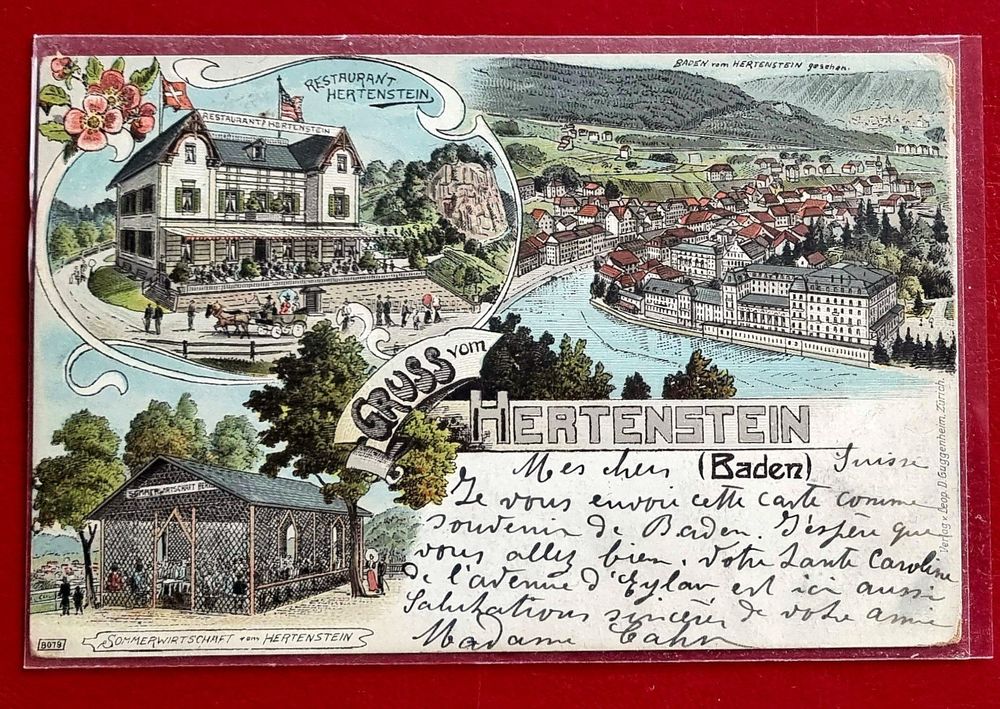 RESTAURANT
HERTENSTEIN
RESTAURANT HERTENSTEIN
BADEN vom HERTENSTEIN gesehen.
GRUSS vom
HERTENSTEIN
(Baden)
Suisse
Mes chers
Je vous envoie cette carte comme
souvenir de Baden. J'éspère que
vous allez bien, votre tante Caroline
de l'avenue d'Eylau est ici aussi
Salutations sincères de votre amie
Madame Cahn
SOMMERWIRTSCHAFT
8079
SOMMERWIRTSCHAFT vom HERTENSTEIN
Verlag v. Leop. D. Guggenheim, Zürich.